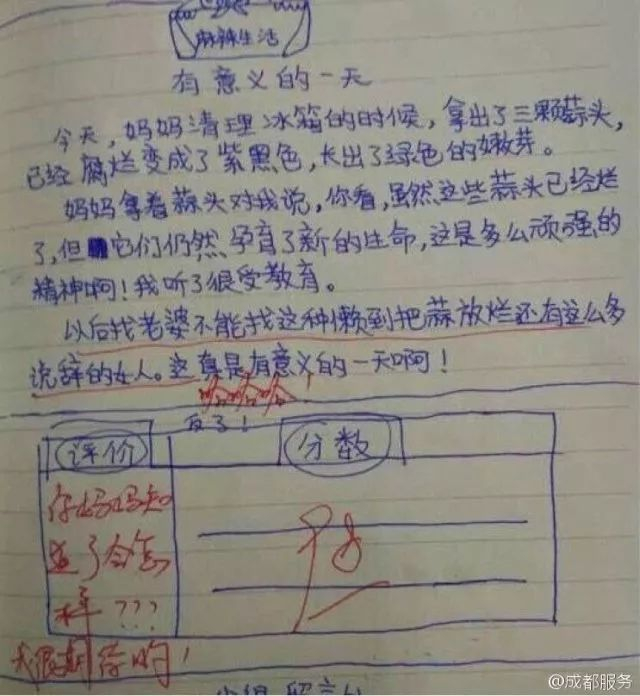 麻辣生活
有意义的一天
今天，妈妈清理冰箱的时候，拿出了三颗蒜头，
已经腐烂变成了紫黑色，长出了绿色的嫩芽。
妈妈拿着蒜头对我说，你看，虽然这些蒜头已经烂
了，但它们仍然孕育了新的生命，这是多么顽强的
精神啊！我听了很受教育。
以后找老婆不能找这种懒到把蒜放烂还有这么多
说辞的女人。这真是有意义的一天啊！
哈哈哈
反了！
评价
分数
你妈妈知
道了会怎
样？？？
祝假期愉快！
@成都服务